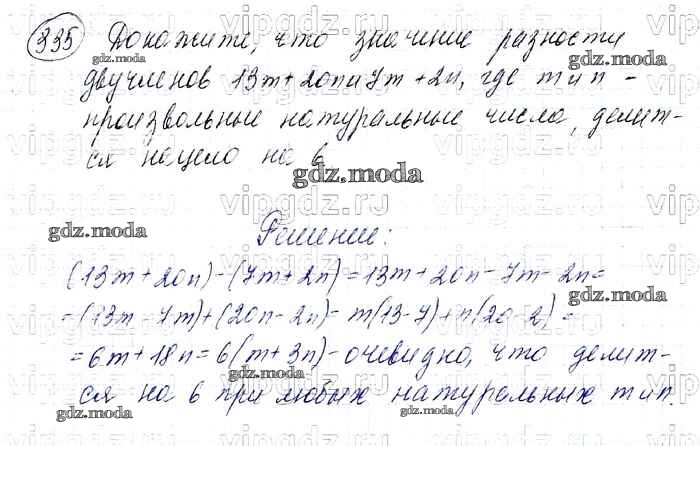 335 Докажите, что значение разности
двучленов 13m+20n и 7m+2n, где m и n -
произвольные натуральные числа, делит-
ся нацело на 6.
Решение:
(13m+20n)-(7m+2n)=13m+20n-7m-2n=
=(13m-7m)+(20n-2n)=m(13-7)+n(20-2)=
=6m+18n=6(m+3n)-очевидно, что делит-
ся на 6 при любых натуральных m и n.